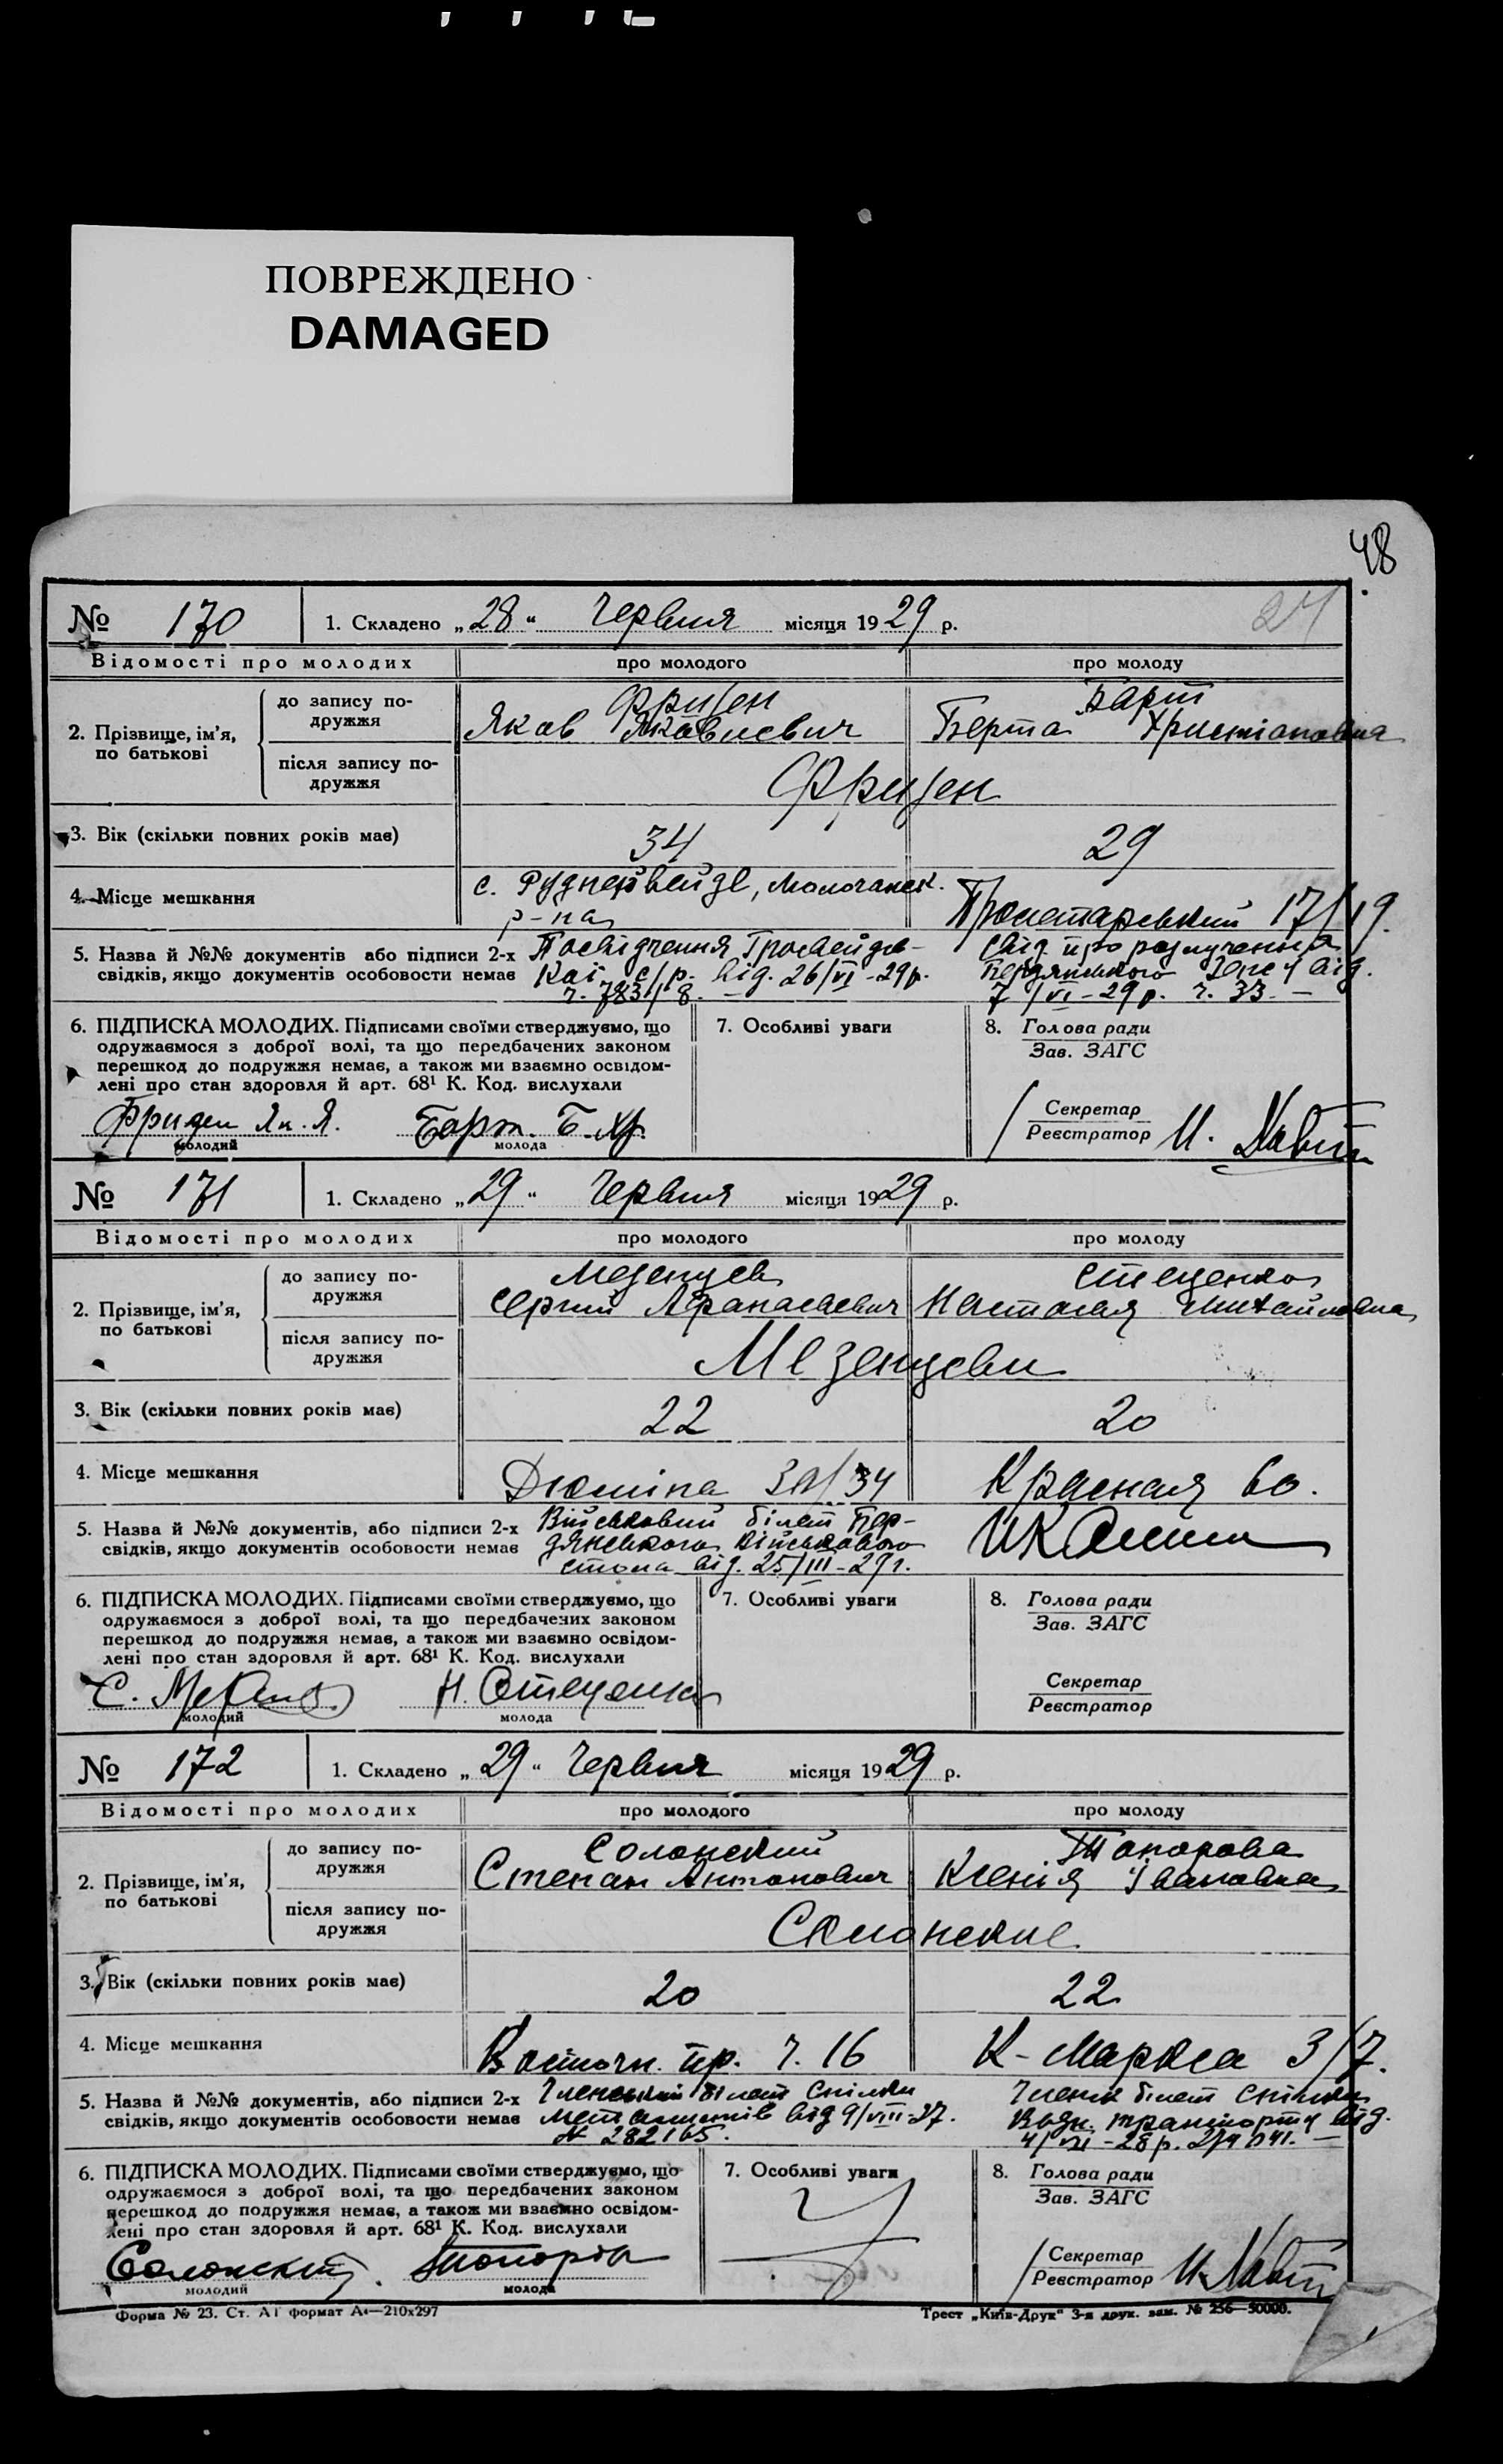 ПОВРЕЖДЕНО
DAMAGED
48
24
№ 170 1. Складено „28" Червня місяця 1929 р.
Відомості про молодих про молодого про молоду
2. Прізвище, ім'я, по батькові
до запису подружжя
Фризен Барт
Яков Яковлевич Берта Христіановна
після запису подружжя
Фризен
3. Вік (скільки повних років має) 34 29
4. Місце мешкання с. Руднервейде, Молочанск. р-на Пролетарський 17/19.
5. Назва й №№ документів або підписи 2-х
свідків, якщо документів особовости немає
Посвідчення Гросвейдев-
кої с/р. від. 26/VI-29р.
ч. 783/8. —
Свід. про розлучення
Бердянського Загсу від.
7/VI-29 р. ч. 33. —
6. ПІДПИСКА МОЛОДИХ. Підписами своїми стверджуємо, що
одружаємося з доброї волі, та що передбачених законом
перешкод до подружжя немає, а також ми взаємно освідом-
лені про стан здоровля й арт. 68¹ К. Код. вислухали
Фризен Як. Я. Барт. Б. Хр.
молодий молода
7. Особливі уваги
8. Голова ради
Зав. ЗАГС
Секретар
Реєстратор
№ 171 1. Складено „29" Червня місяця 1929 р.
Відомості про молодих про молодого про молоду
2. Прізвище, ім'я, по батькові
до запису подружжя
Мезенцев Стеценко
Сергий Афанасаевич Настасия Михайловна
після запису подружжя
Мезенцеви
3. Вік (скільки повних років має) 22 20
4. Місце мешкання Дюміна 34 Красная 60.
5. Назва й №№ документів, або підписи 2-х
свідків, якщо документів особовости немає
Військовий білет Бер-
дянського військового
стола від. 25/III-29 г.
6. ПІДПИСКА МОЛОДИХ. Підписами своїми стверджуємо, що
одружаємося з доброї волі, та що передбачених законом
перешкод до подружжя немає, а також ми взаємно освідом-
лені про стан здоровля й арт. 68¹ К. Код. вислухали
Н. Стеценко
молодий молода
7. Особливі уваги
8. Голова ради
Зав. ЗАГС
Секретар
Реєстратор
№ 172 1. Складено „29" Червня місяця 1929 р.
Відомості про молодих про молодого про молоду
2. Прізвище, ім'я, по батькові
до запису подружжя
Солонский Топорова
Степан Антонович Ксенія Івановна
після запису подружжя
Солонские
3. Вік (скільки повних років має) 20 22
4. Місце мешкання Восточн. пр. ч. 16 К-Маркса 3/7.
5. Назва й №№ документів, або підписи 2-х
свідків, якщо документів особовости немає
Членський білет Спілки
Металистів від 9/VIII-27.
№ 282165.
Членск білет Спілки
Водн. транспорту від.
6. ПІДПИСКА МОЛОДИХ. Підписами своїми стверджуємо, що
одружаємося з доброї волі, та що передбачених законом
перешкод до подружжя немає, а також ми взаємно освідом-
лені про стан здоровля й арт. 68¹ К. Код. вислухали
Солонский. Топорова
молодий молода
7. Особливі уваги
8. Голова ради
Зав. ЗАГС
Секретар
Реєстратор
Форма № 23. Ст. АІ формат А4—210х297
Трест „Київ-Друк" 3-я друк. зам. № 256—50000.